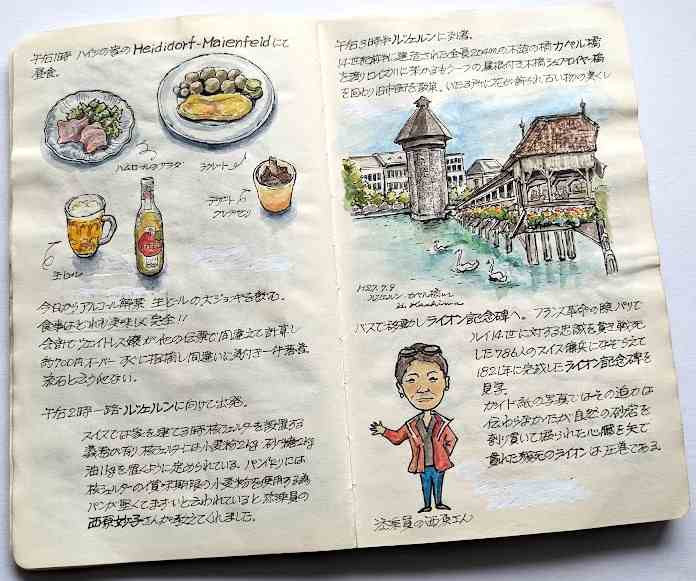 午后1時 ハイジの家のHeididorf-Maienfeldにて
昼食。
ハムロールのサラダ
ラクレット
デザート
生ビール
今日からアルコール解禁 生ビールの大ジョッキを飲む。
食事はどれも美味しく完全!!
会計でウェイトレス嬢が他の伝票で間違えて計算し
約700円オーバー すぐに指摘し間違いに
流石と
午后2時一路・ルツェルンに向けて出発。
スイスでは家を建てる時 核シェルターを設置する
義務が有り 核シェルターには小麦粉2kg・砂糖2kg
油1kgを備えように定められている。パン作りには
核シェルターの賞味期限の小麦粉を使用する為
パンが堅くてまずいと云われていると 添乗員の
西原妙子さんが教えてくれました。
午后3時半ルツェルンに到着。
14世紀前半に建造された全長204mの木造の橋 カペル橋
を渡りロイス川に架かるもう一つの屋根付き木橋シュプロイヤー橋
を回り旧市街を散策、いたる所に花が飾られ古い街の美しく
H27.7.9
ルツェルン カペル橋
バスで移動しライオン記念碑へ。フランス革命の際パリで
ルイ14世に対する忠誠を貫き戦死
した786人のスイス傭兵になぞらえて
1821年に完成したライオン記念碑を
見学。
ガイド紙の写真ではその迫力は
伝わらなかったが自然の砂岩を
刳り貫いて掘られた心臓を矢で
貫れた瀕死のライオンは圧巻である。
添乗員の西原さん